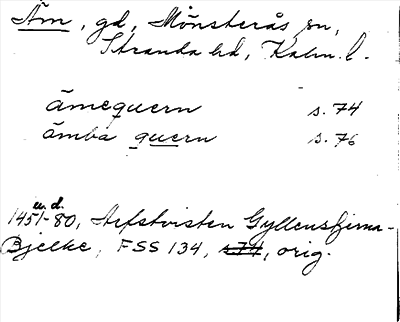 Äm, gd, Mönsterås sn,
Stranda hd, Kalm. l.
ämequern s. 74
ämba quern s. 76
u. d.
1451-80, Arfstvisten Gyllenstjerna-
Bjelke, FSS 134, s74, orig.